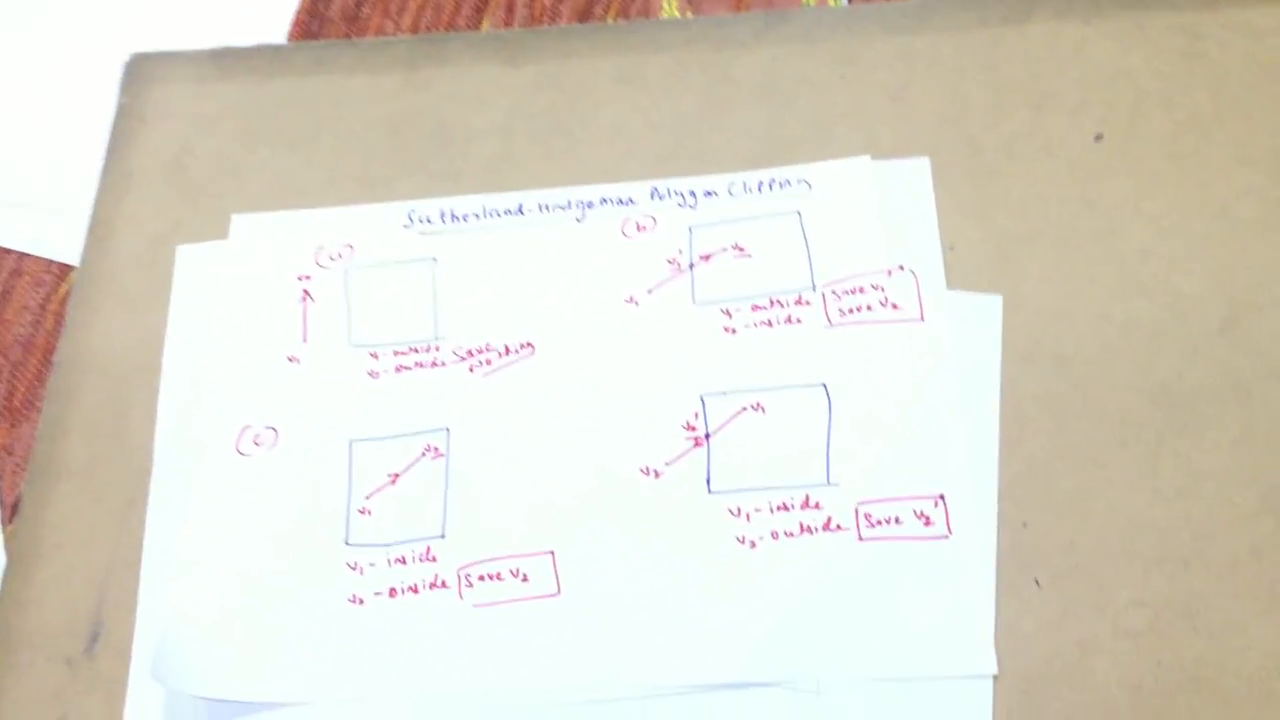 Sutherland-Hodgeman Polygon Clipping
(a)
v1
v1 - outside
v2 - outside
(b)
v1'
v2
v1
v1 - outside
v2 - inside
Save v1'
Save v2
(c)
v2
v1
v1 - inside
v2 - inside
Save v2
v1
v2'
v2
v1 - inside
v2 - outside
Save v2'